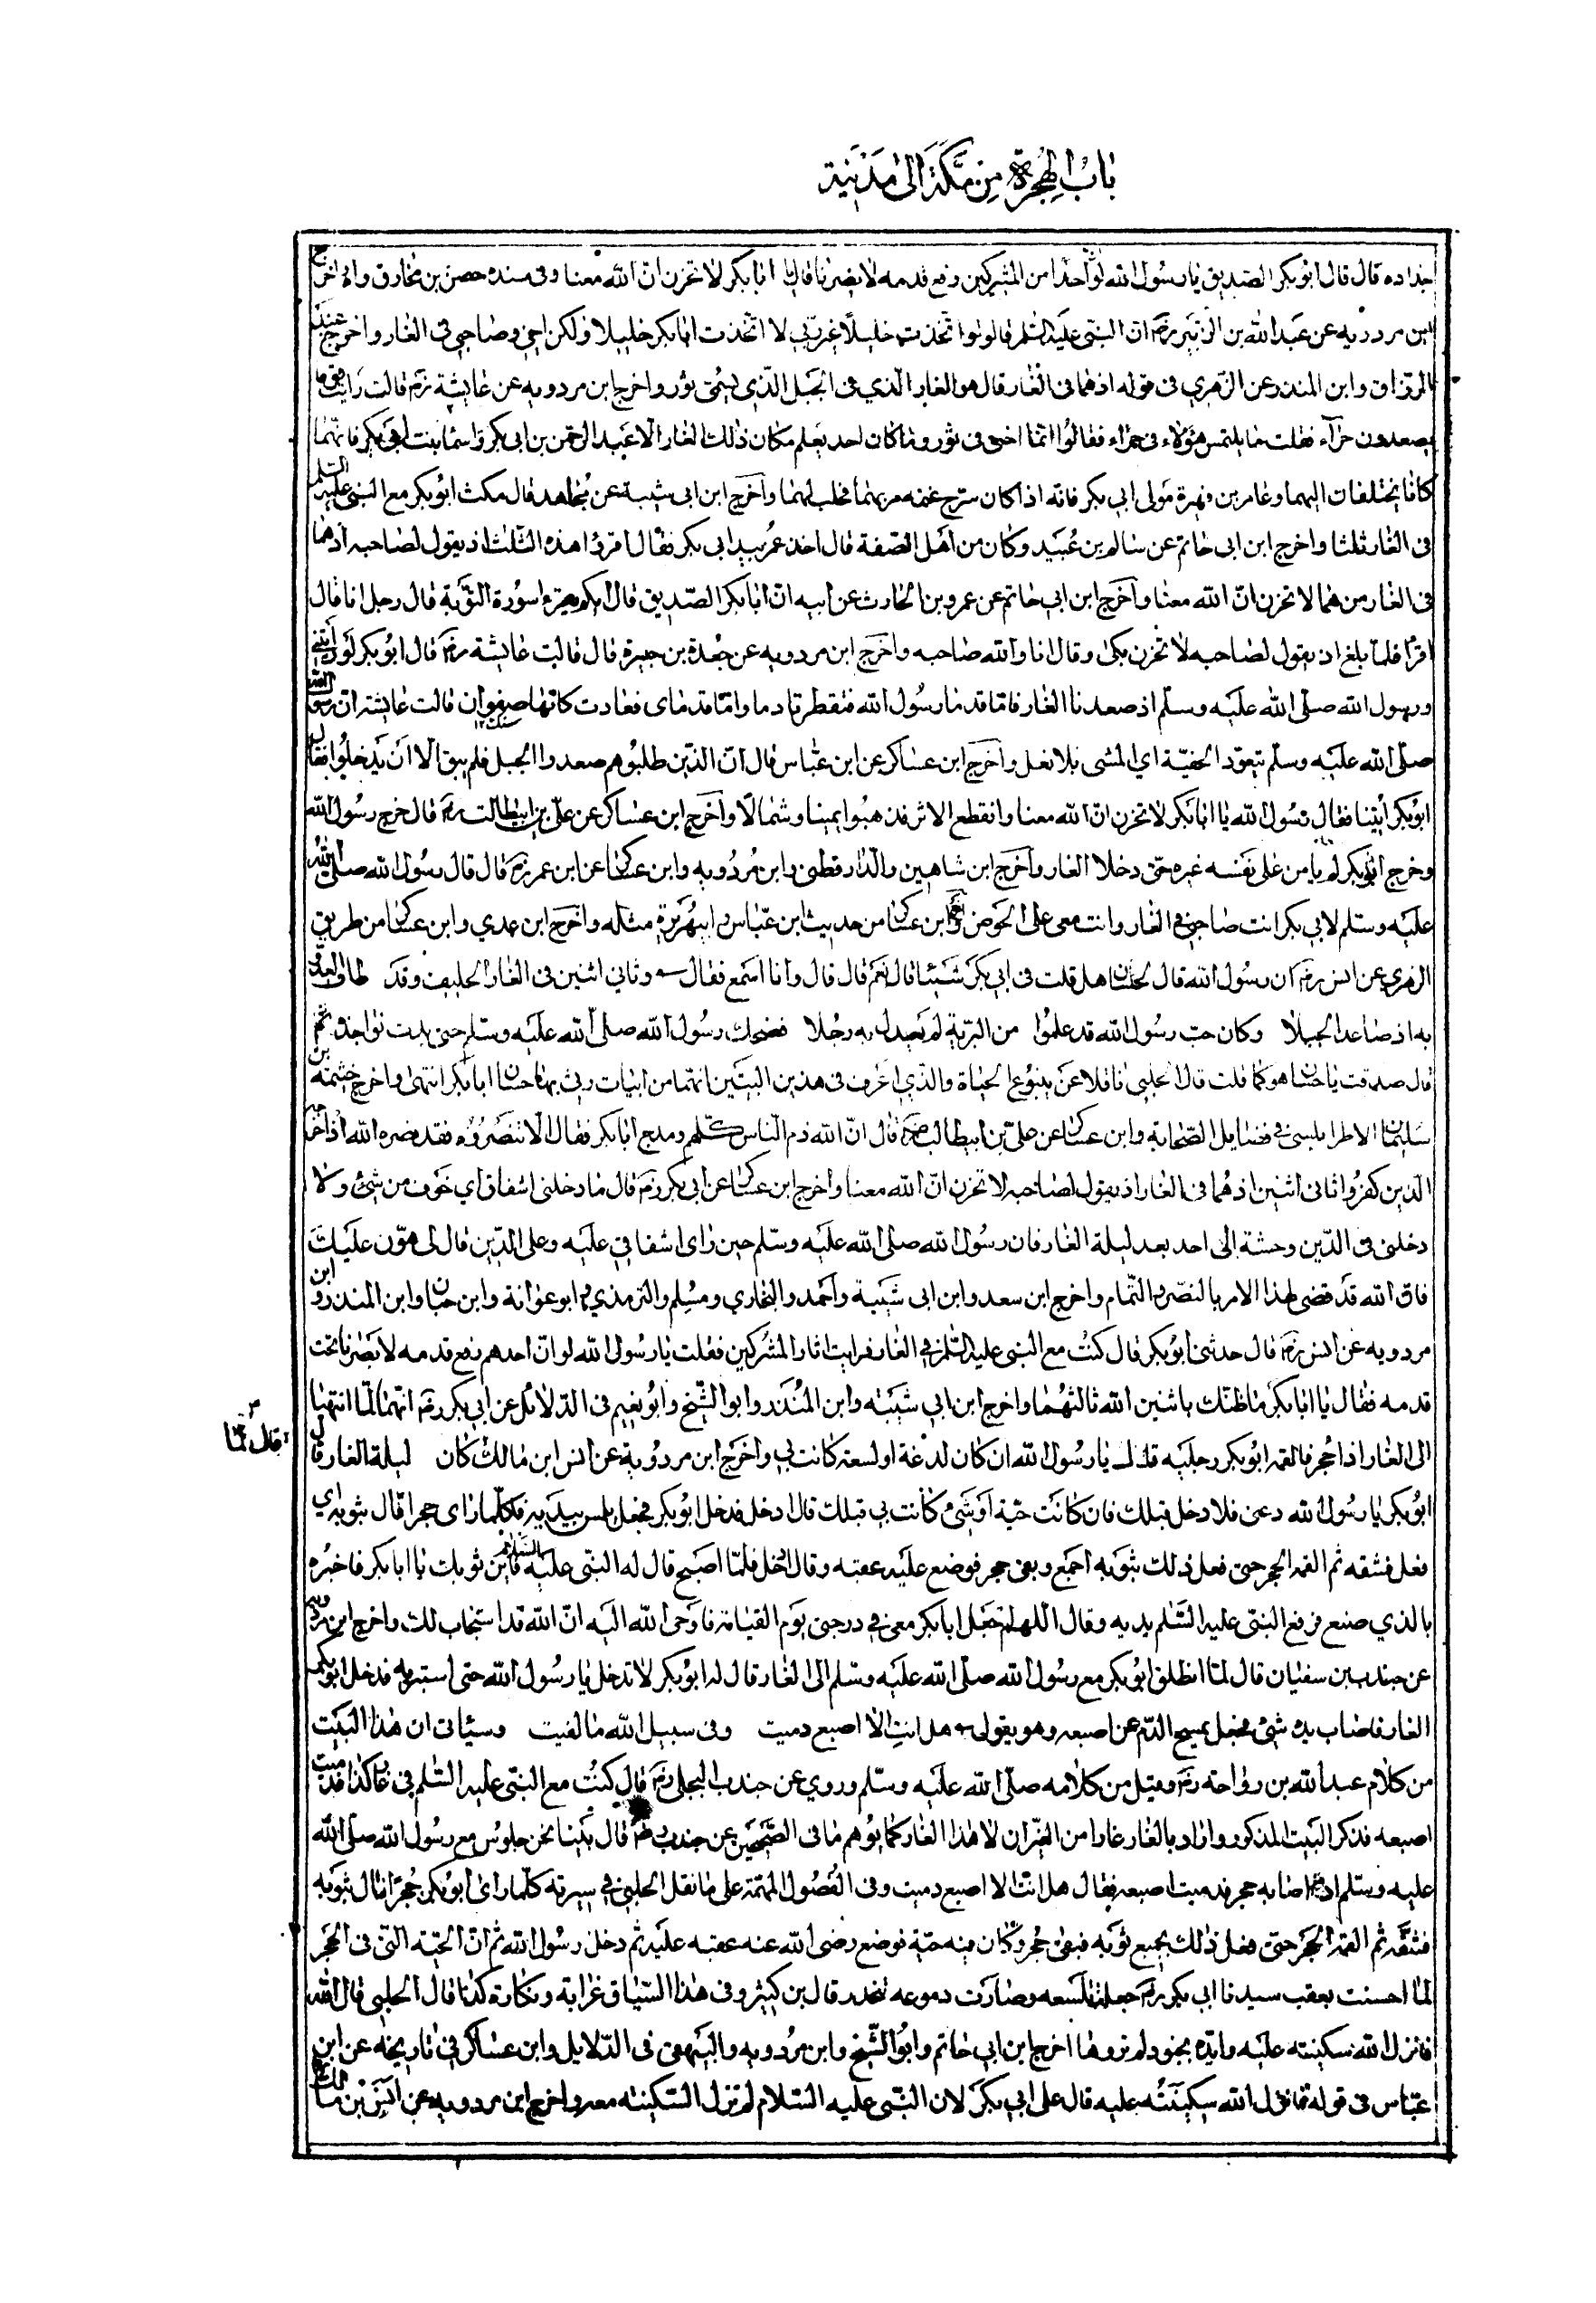 باب الهجرة من مكة الى مدنية
جناده قال قال ابو بكر الصديق يا رسول الله لو احدا من المشركين رفع قدمه لابصرنا قال يا ابا بكر لا تحزن ان الله معنا وفى سنده حصن بن مخارق واه اخرج
ابن مردويه عن عبد الله بن الزبير رضى ان النبى عليه السلم قال ولو اتخذت خليلا غير ربى لا اتخذت ابا بكر خليلا ولكن اخى وصاحبى فى الغار واخرج عبد
الرزاق وابن المنذر عن الزهرى فى قوله اذهما فى الغار قال هو الغار الذي فى الجبل الذي يسمى ثور واخرج ابن مردويه عن عايشة رضى قالت رايت قوما
يصعدون حرآء فقلت ما يلتمس هؤلاء فى حراء فقالوا انما اختفى فى ثور وما كان احد يعلم مكان ذلك الغار الا عبد الرحمن بن ابى بكر واسما بنت ابى بكر فانهما
كانا يختلفان اليهما وعامر بن فهيرة مولى ابى بكر فانه اذا كان سرح غنمه مر بهما فحلب لهما وأخرج ابن ابى شيبة عن مجاهد قال مكث ابو بكر مع النبى عليه السلم
فى الغار ثلثا واخرج ابن ابى حاتم عن سالم بن عبيد وكان من اهل الصفة قال اخذ عمر بيد ابى بكر فقال افرد هذه الثلث اذ يقول لصاحبه اذهما
فى الغار من هما لا تحزن ان الله معنا وأخرج ابن ابى حاتم عن عمرو بن الحارث عن ابيه ان ابا بكر الصديق قال ايكم يقرء اسورة التوبة قال رجل انا قال
اقرأ فلما بلغ اذ يقول لصاحبه لا تحزن بكى وقال انا والله صاحبه واخرج ابن مردويه عن جعدة بن هبيرة قال قالت عايشة رضى قال ابو بكر لو رأيتنى
ورسول الله صلى الله عليه وسلم اذ صعدنا الغار فاما قدما رسول الله فتقطرتا دما واما قدماى فعادت كانها صفوان قالت عايشة ان رسول الله
صلى الله عليه وسلم لم يتعود الحفيّة اي المشى بلا نعل وأخرج ابن عساكر عن ابن عباس قال ان الذين طلبوهم صعدوا الجبل فلم يبق الا ان يدخلوا فقال
ابو بكر أتينا فقال رسول الله يا ابا بكر لا تحزن ان الله معنا وانقطع الاثر فذهبوا يمينا وشمالا وأخرج ابن عساكر عن على بن ابيطالب رضى قال خرج رسول الله
وخرج ابو بكر لم يأمن على نفسه غيره حتى دخلا الغار وأخرج ابن شاهين والدارقطنى وابن مردويه وابن عساكر عن ابن عمر رضى قال قال رسول الله صلى الله
عليه وسلم لابى بكر انت صاحبى فى الغار وانت معى على الحوض وابن عساكر من حديث ابن عباس وابيهريرة مثله واخرج ابن عدي وابن عساكر من طريق
الزهري عن انس رضى ان رسول الله قال لحسان هل قلت فى ابى بكر شيئا قال نعم قال قال وانا اسمع فقال وثاني اثنين فى الغار الحليف وقد طاف العدو
به اذ صاعد الجبلا وكان حب رسول الله قد علموا من البرية لم يعدل به رجلا فضحك رسول الله صلى الله عليه وسلم حتى بدت نواجذه ثم
قال صدقت يا حسان هو كما قلت قال الحلبى ناقلا عن ينبوع الحياة والذي اعرف فى هذين البيتين انهما من ابيات رثى بها حسان ابا بكر انتهى واخرج خيثمة بن
سليمان الاطرابلسى فى فضايل الصحابة وابن عساكر عن على بن ابيطالب رضى قال ان الله ذم الناس كلهم ومدح ابا بكر فقال الا تنصروه فقد نصره الله اذ اخرجه
الذين كفروا ثانى اثنين اذهما فى الغار اذ يقول لصاحبه لا تحزن ان الله معنا وأخرج ابن عساكر عن ابى بكر رضى قال ما دخلنى اشفاق اي خوف من شئ ولا
دخلنى فى الدين وحشة الى احد بعد ليلة الغار فان رسول الله صلى الله عليه وسلم حين راى اشفاقى عليه وعلى الدين قال لى هون عليك
فان الله قد قضى لهذا الامر بالنصر والتمام واخرج ابن سعد وابن ابى شيبة وأحمد والبخاري ومسلم والترمذي وابو عوانة وابن حبان وابن المنذر وابن
مردويه عن انس رضى قال حدثنى ابو بكر قال كنت مع النبى عليه السلم فى الغار فرايت اثار المشركين فقلت يا رسول الله لو ان احدهم رفع قدمه لابصرنا تحت
قدمه فقال يا ابا بكر ما ظنك باثنين الله ثالثهما واخرج ابن ابي شيبته وابن المنذر وابو الشيخ وابو نعيم فى الدلائل عن ابى بكر رضى انهما لما انتهيا
الى الغار اذا جحر فالقمه ابو بكر رجليه قال يا رسول الله ان كان لدغة او لسعة كانت بى وأخرج ابن مردويه عن انس ابن مالك كان ليلة الغار قال
قال لما
ابو بكر يا رسول الله دعنى فلادخل قبلك فان كانت حية او شئ كانت بى قبلك قال ادخل فدخل ابو بكر فجعل يلمس بيديه فكلما راى جحرا قال بثوبه اي
فعل فشقه ثم القمه الجحر حتى فعل ذلك بثوبه اجمع وبقى جحر فوضع عليه عقبه وقال ادخل فلما اصبح قال له النبى عليه السلام فاين ثوبك يا ابا بكر فاخبره
بالذي صنع فرفع النبى عليه السلم يديه وقال اللهم اجعل ابا بكر معى فى درجتى يوم القيامة فاوحى الله اليه ان الله قد استجاب لك واخرج ابن مردويه
عن جندب بن سفيان قال لما انطلق ابو بكر مع رسول الله صلى الله عليه وسلم الى الغار قال له ابو بكر لا تدخل يا رسول الله حتى استبريه فدخل ابو بكر
الغار فاصاب يده شئ فجعل يمسح الدم عن اصبعه وهو يقول هل انت الا اصبع دميت وفى سبيل الله ما لقيت وسيأتى ان هذا البيت
من كلام عبد الله بن رواحة رضى وقيل من كلامه صلى الله عليه وسلم وروي عن جندب البجلى رضى قال كنت مع النبى عليه السلم فى غار كذا فدميت
اصبعه فذكر البيت المذكور واراد بالغار غارا من الغيران لا هذا الغار كما يوهم ما فى الصحيحين عن جندب قال بينا نحن جلوس مع رسول الله صلى الله
عليه وسلم اذ اصابه حجر فدميت اصبعه فقال هل انت الا اصبع دميت وفى الفصول المهمة على ما نقل الحلبى فى سيرته كلما راى ابو بكر جحرا قال بثوبه
فشقه ثم القمه الجحر حتى فعل ذلك بجميع ثوبه فبقى جحر وكان فيه حية فوضع رضى الله عنه عقبه عليه ثم دخل رسول الله ثم ان الحية التى فى الجحر
لما احست بعقب سيدنا ابى بكر رضى جعلت تلسعه وصارت دموعه تنحدر قال بن كثير وفى هذا السياق غرابة ونكارة كذا قال الحلبى قال الله
فانزل الله سكينته عليه وايده بجنود لم تروها اخرج ابن ابي حاتم وابو الشيخ وابن مردويه والبيهقى فى الدلايل وابن عساكر فى تاريخه عن ابن
عباس فى قوله فانزل الله سكينته عليه قال على ابى بكر لان النبى عليه السلام لم تزل السكينة معه واخرج ابن مردويه عن انس بن مالك